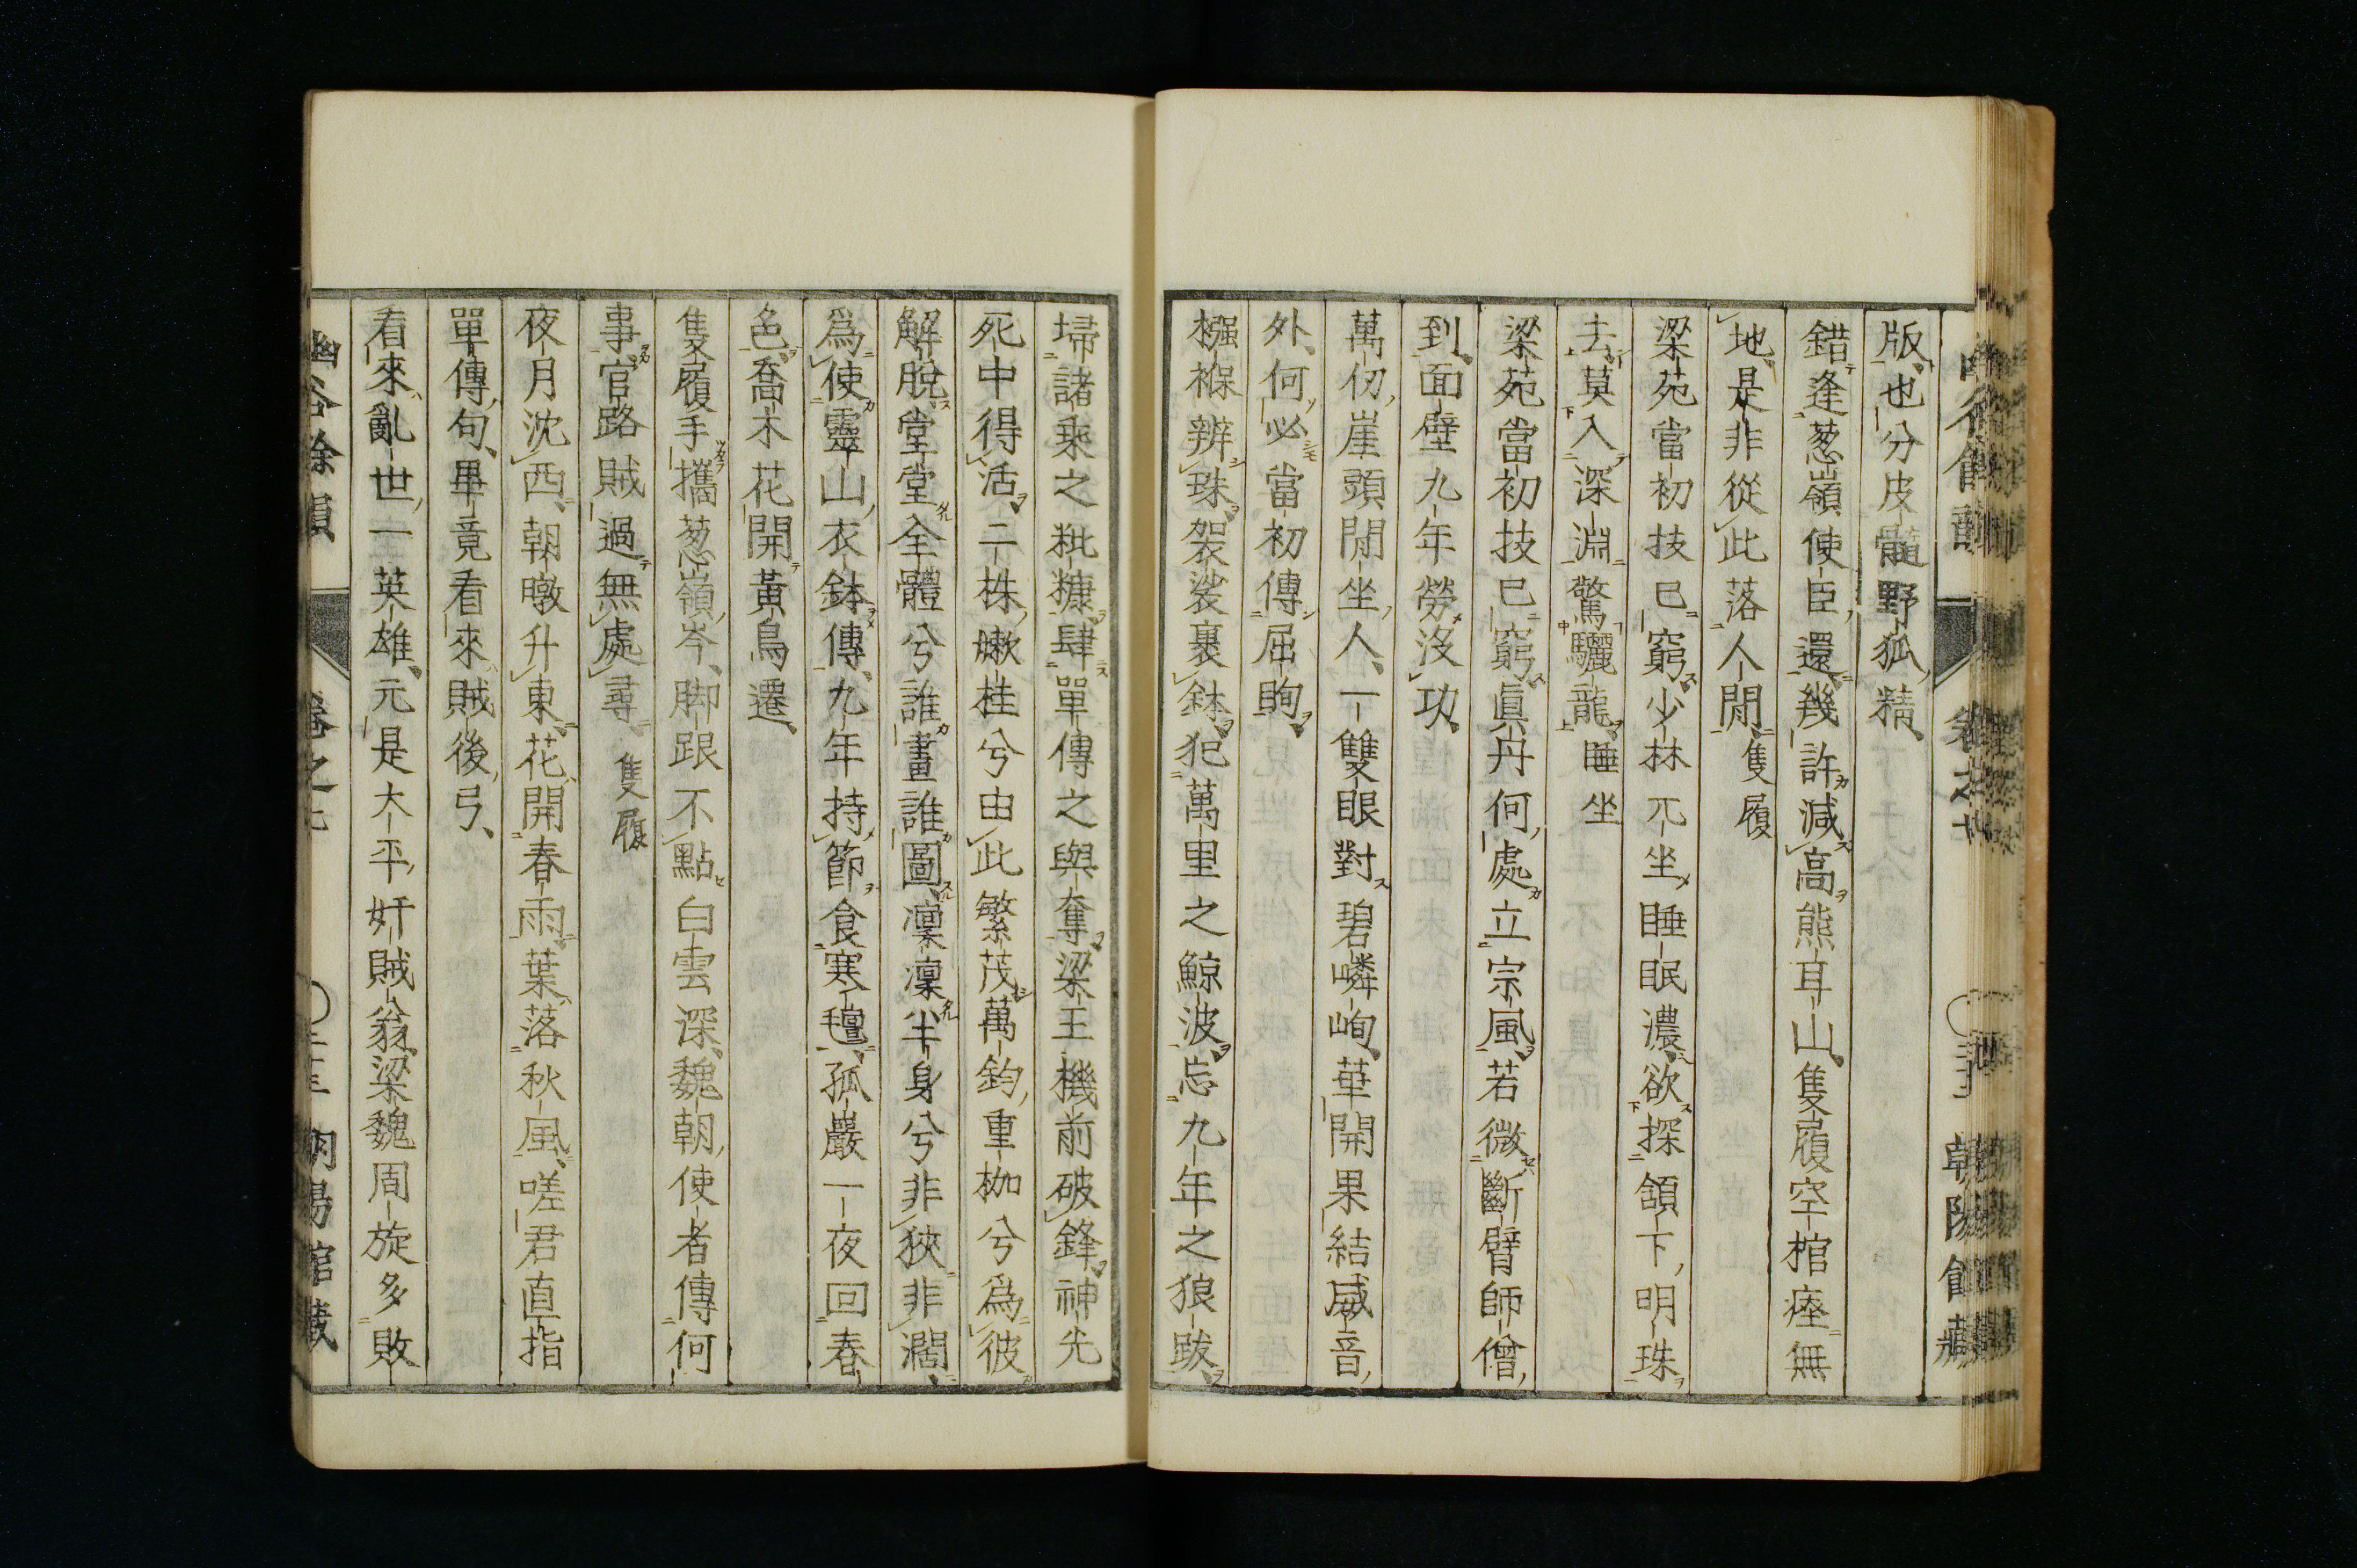 版也分皮髓野狐精
錯逢葱嶺使臣還幾許減高熊耳山隻履空棺瘞無
地是非從此落人間 隻履
梁苑當初技已窮少林兀坐睡眠濃欲探頷下明珠
去莫入深淵驚驪龍 睡坐
梁苑當初技已窮眞丹何處立宗風若微斷臂師僧
到面壁九年勞沒功
萬仞崖頭閒坐人一雙眼對碧嶙峋華開果結威音
外何必當初傳屈眴
襁褓辨珠袈裟裹鉢犯萬里之鯨波忘九年之狼跋
掃諸乘之粃糠肆單傳之與奪梁王機前破鋒神光
死中得活二株嫩桂兮由此繁茂萬鈞重枷兮爲彼
解脱堂堂全體兮誰畫誰圖凜凜半身兮非狹非濶
爲使靈山衣鉢傳九年持節食寒氈孤巖一夜回春
色喬木花開黃鳥遷
隻履手攜葱嶺岑脚跟不點白雲深魏朝使者傳何
事官路賊過無處尋 隻履
夜月沈西朝暾升東花開春雨葉落秋風嗟君直指
單傳句畢竟看來賊後弓
看來亂世一英雄元是大平奸賊翁梁魏周旋多敗
幽谷餘韻 卷之七 朝陽館藏